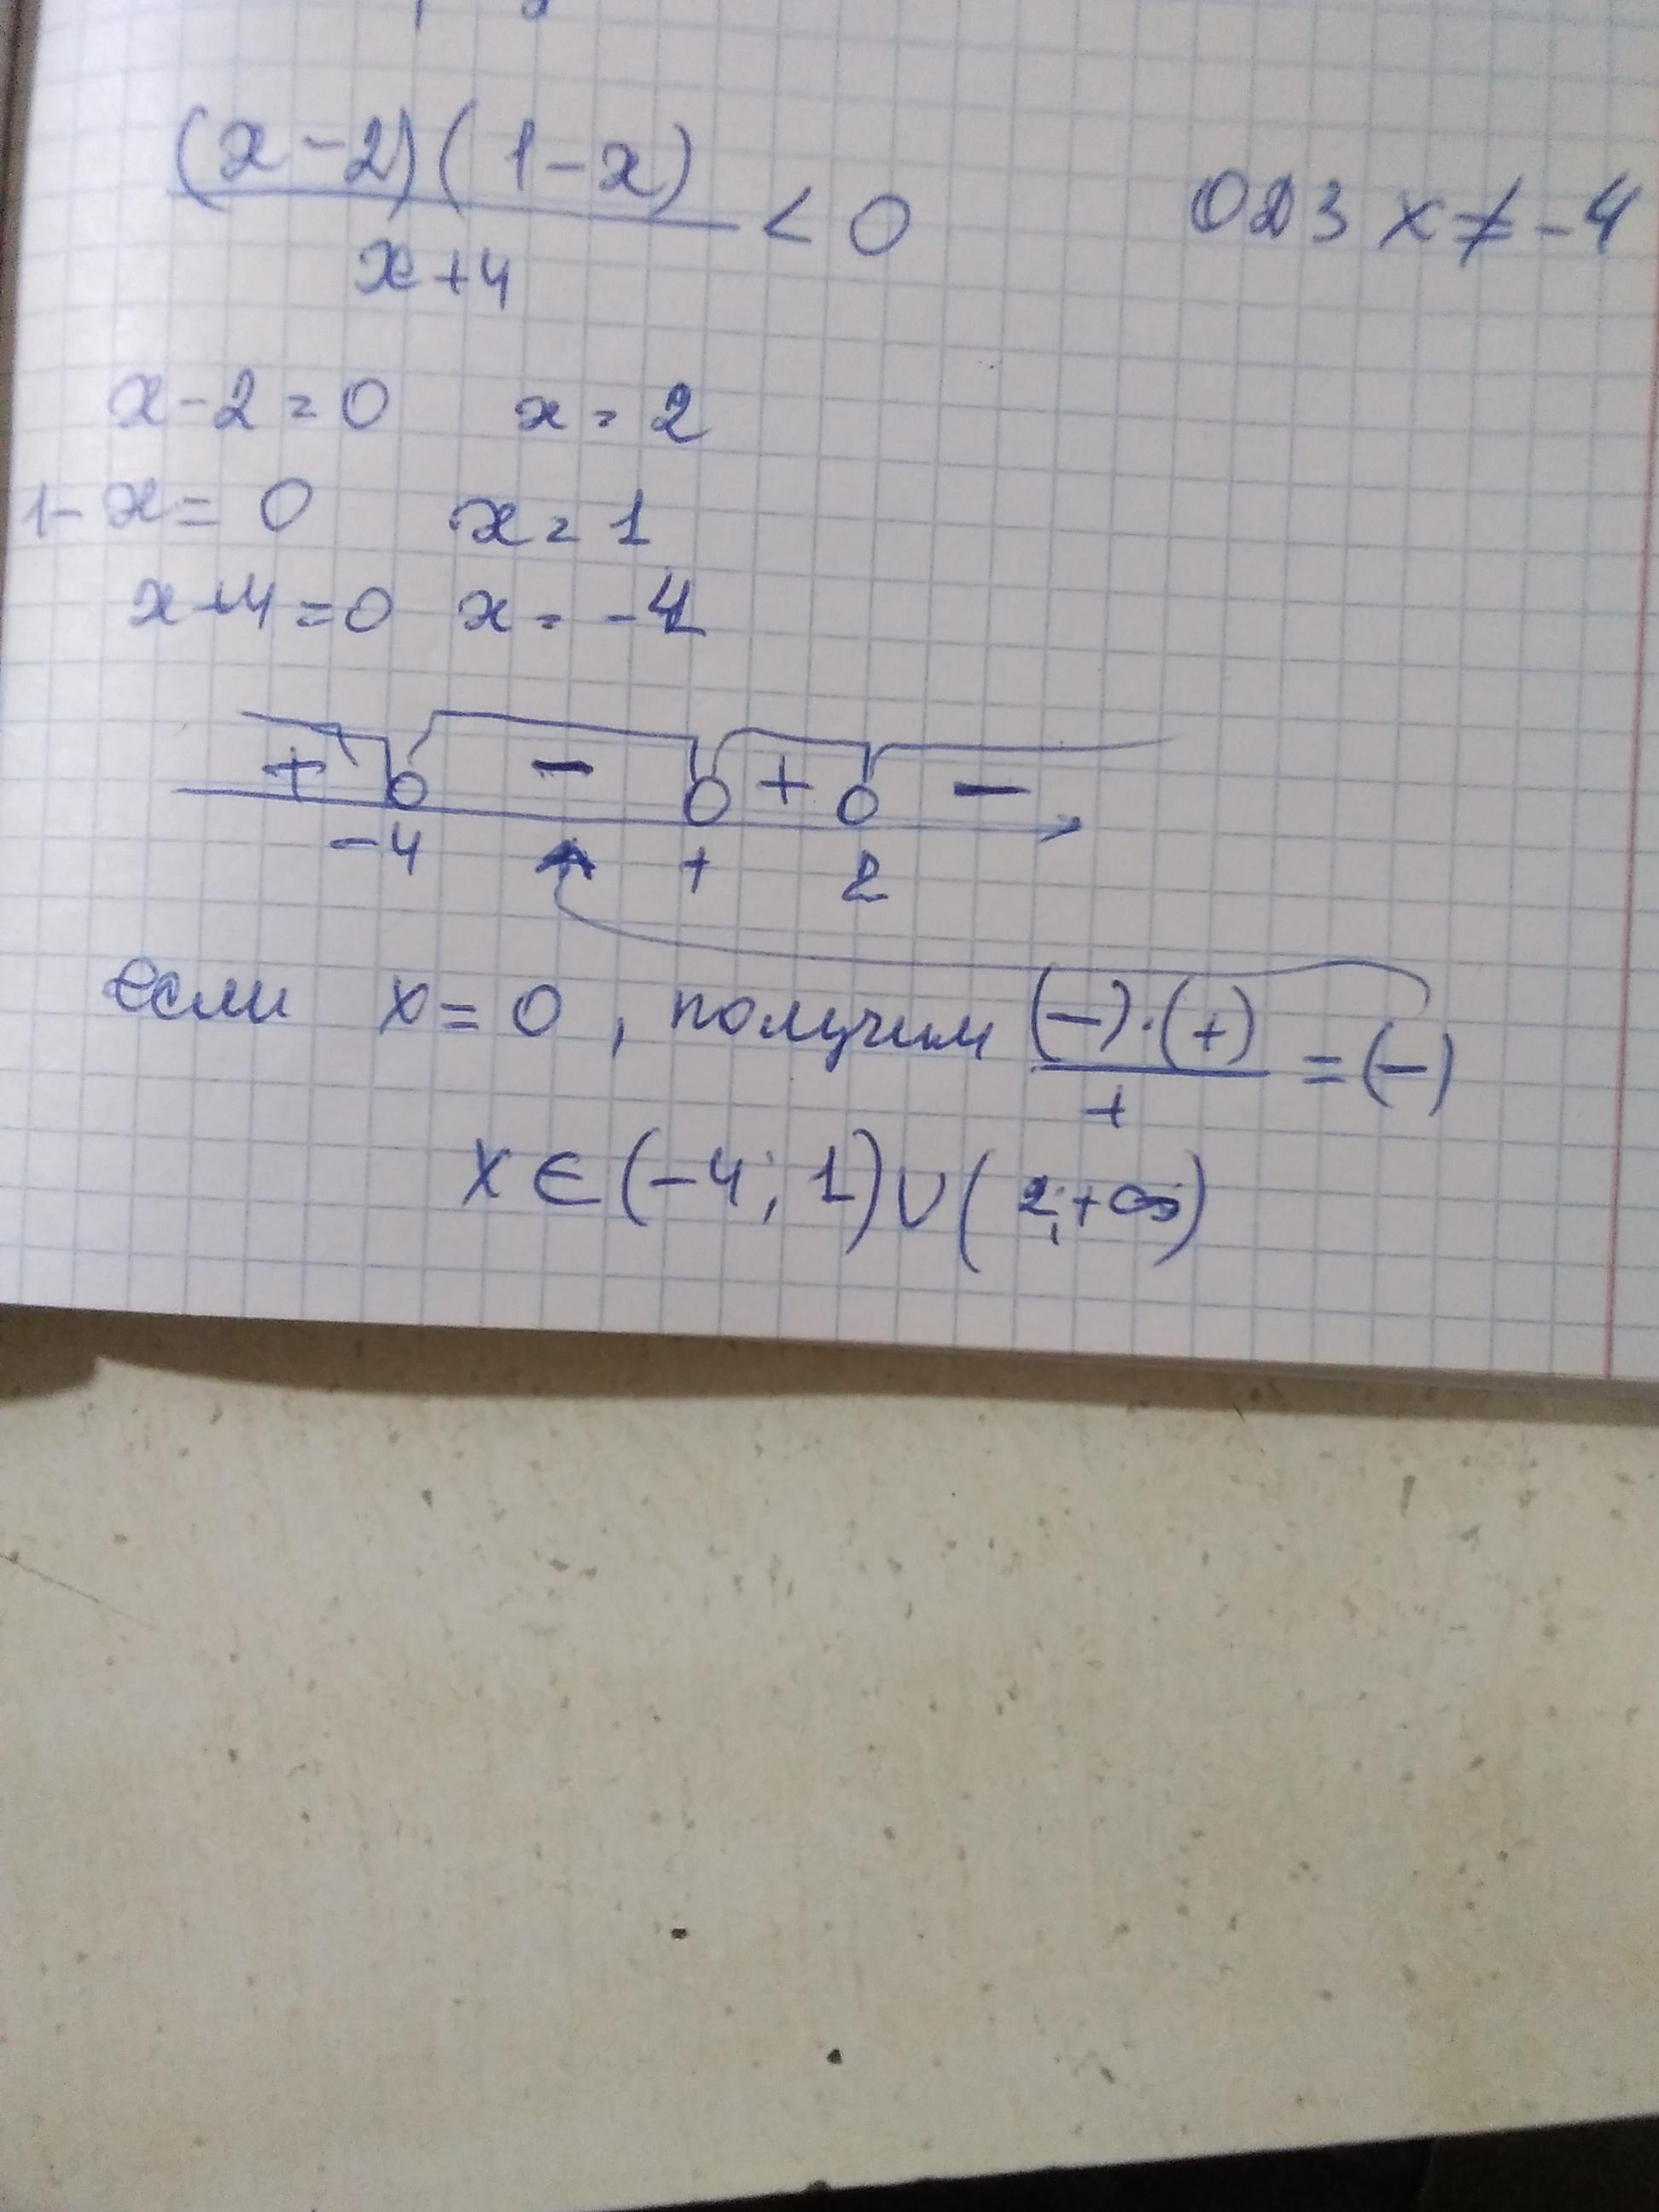 (x-2)(1-x)
x+4
< 0
ОДЗ x ≠ -4
x-2=0 x=2
1-x=0 x=1
x+4=0 x=-4
+ - + -
-4 + 2
если x=0, получим (-)·(+)
+
=(-)
x∈(-4; 1)∪(2;+∞)